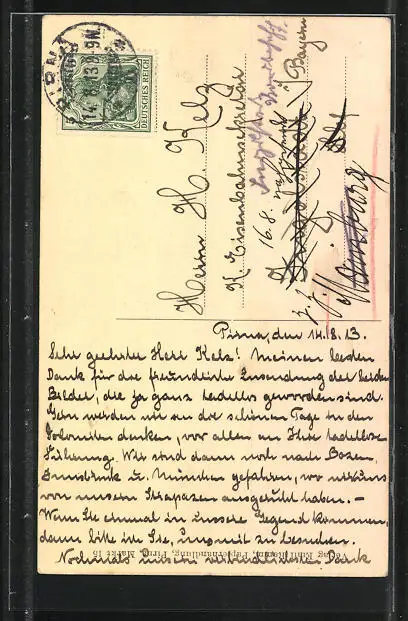 PIRNA
14.8.13.8-9N.
DEUTSCHES REICH
5
Herrn H. Kelz
K. Eisenbahnsekretär
16.8.
Bayern
Pirna, den 14.8.13.
Sehr geehrter Herr Kelz! Meinen besten
Dank für die freundliche Zusendung der beiden
Bilder, die ja ganz tadellos geworden sind.
Gern werden wir an die schönen Tage in den
Dolomiten denken, vor allen an Ihre tadellose
Führung. Wir sind dann noch nach Bozen,
Innsbruck u. München gefahren, wo wir uns
von unsern Strapazen ausgeruht haben. –
Wenn Sie einmal in unsere Gegend kommen,
dann bitte ich Sie, uns mit zu besuchen.
Nochmals unsern verbindlichsten Dank
Papierhandlung, Pirna, Markt 15